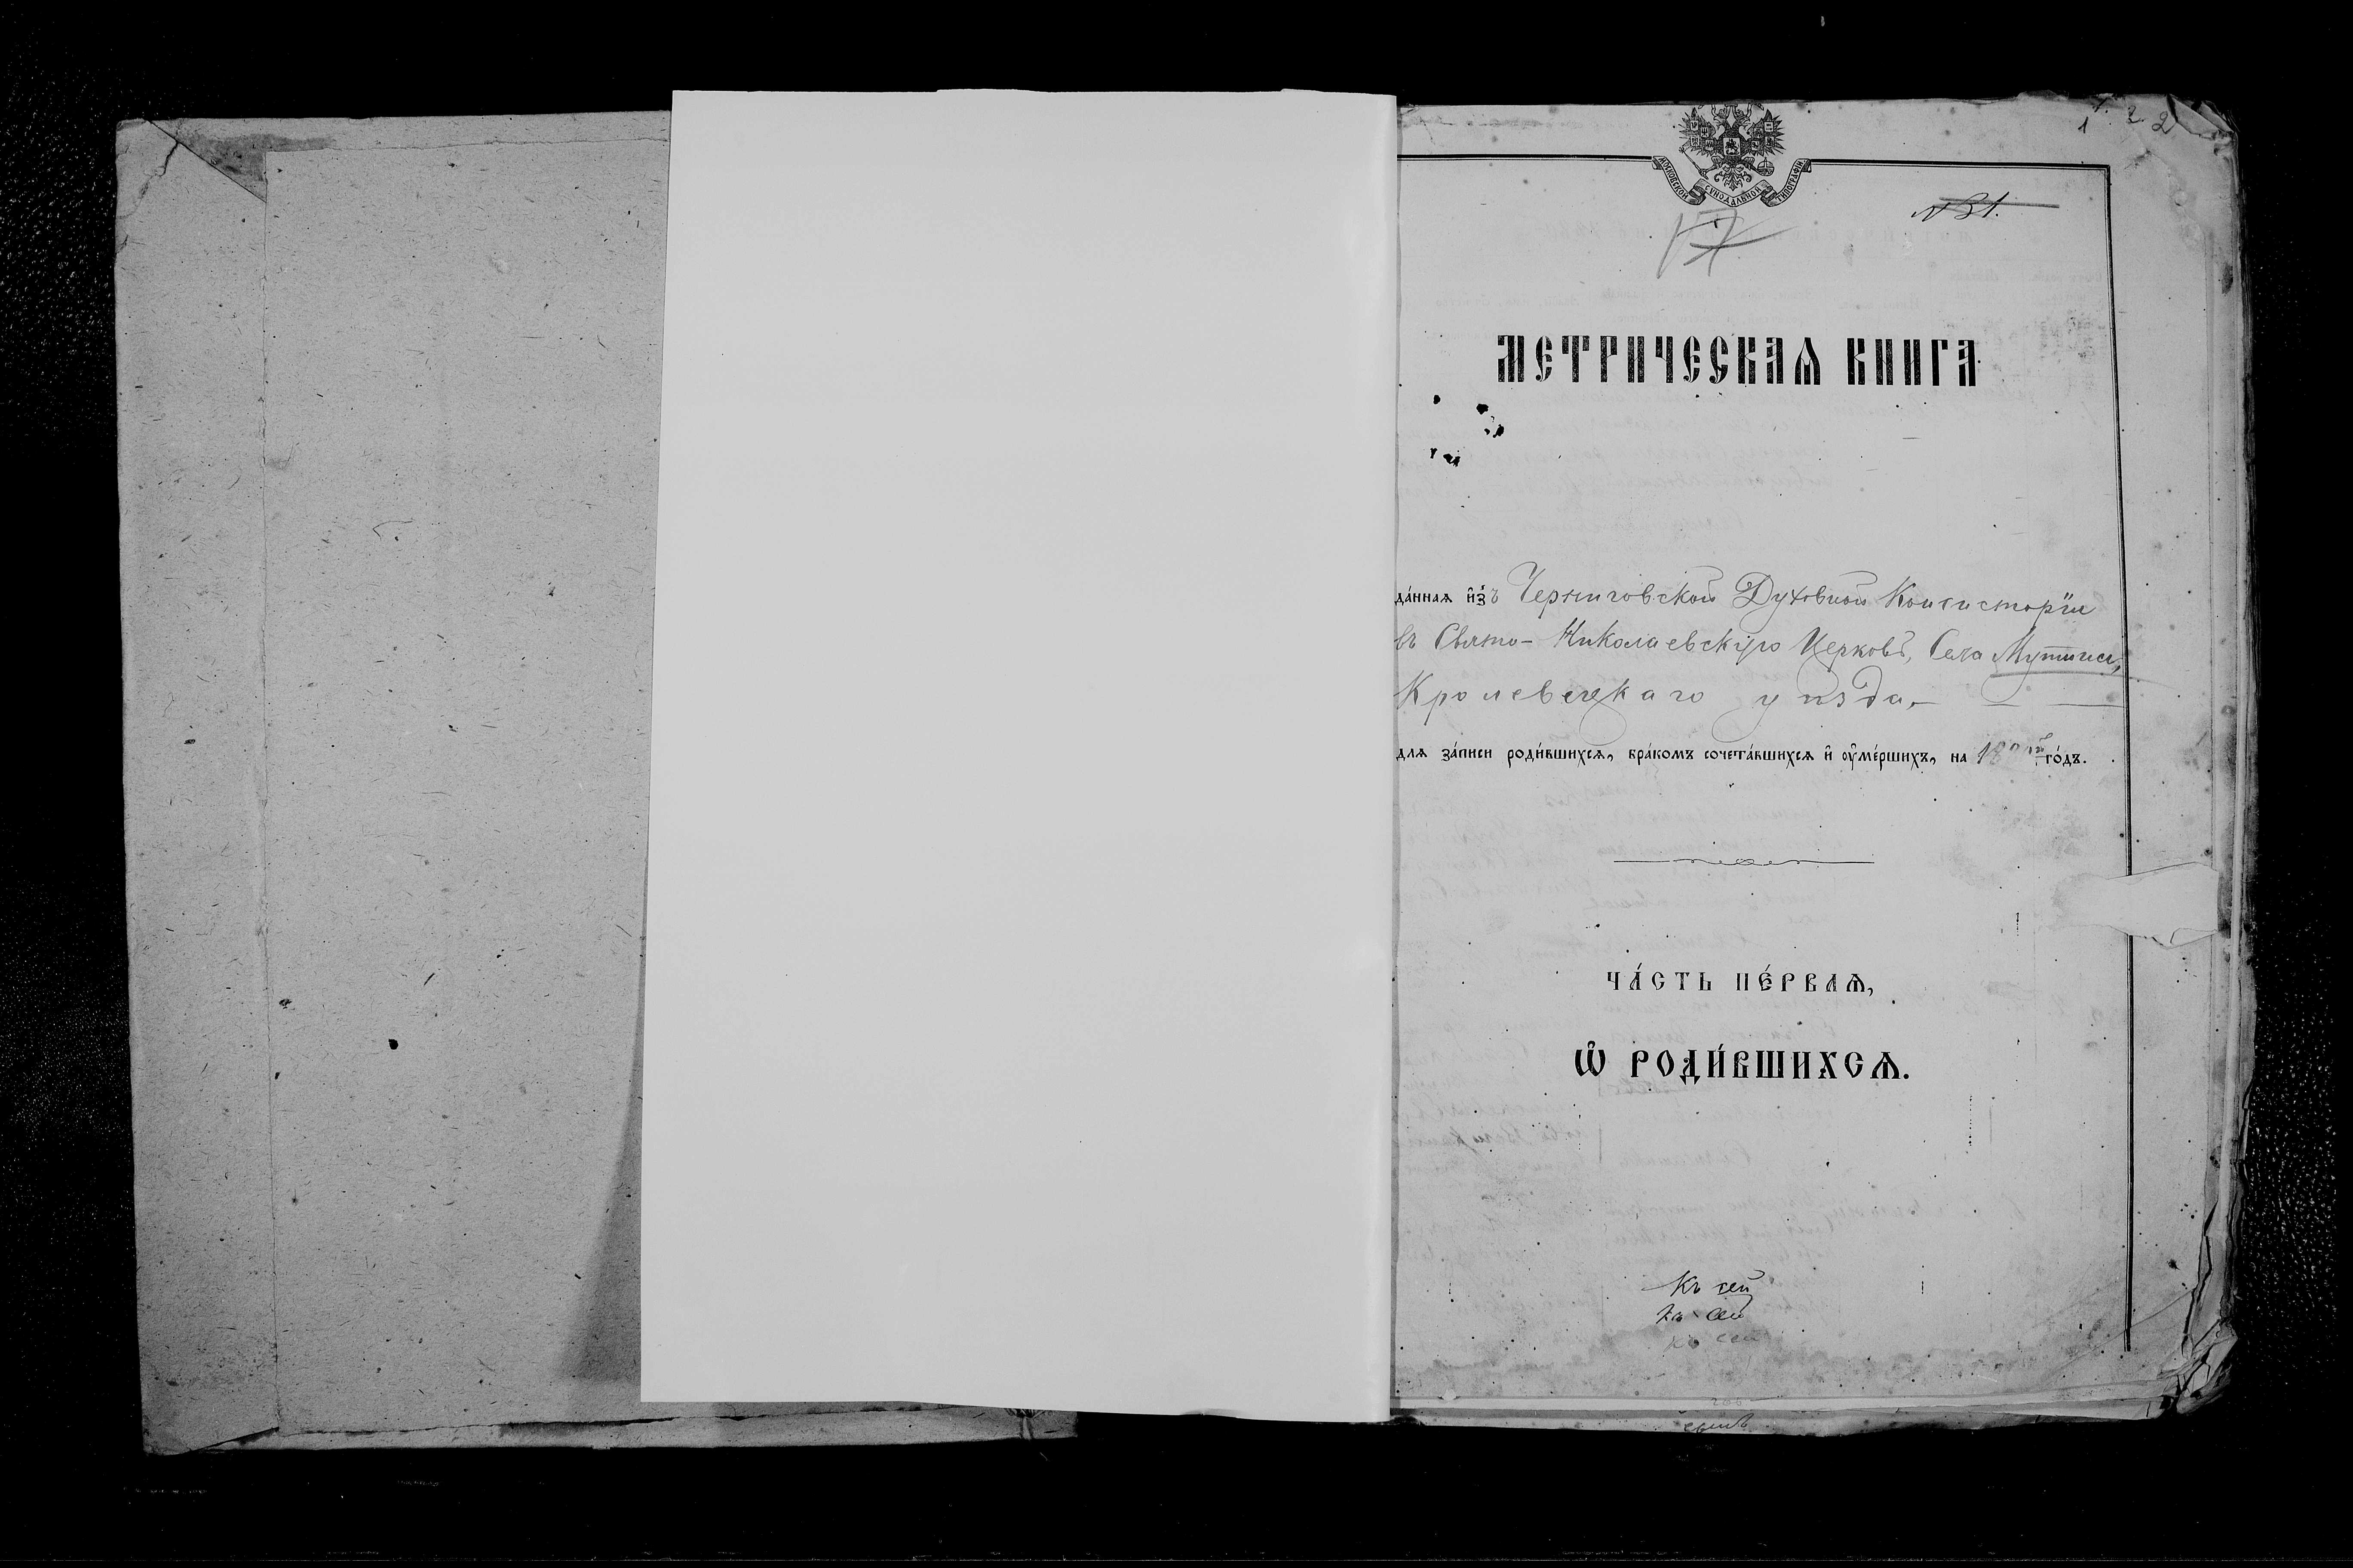 1 2 2
МОСКОВСКОЙ СѴНОДАЛЬНОЙ ТИПОГРАФІИ
№ 31.
17
МЕТРИЧЕСКАѦ КНИГА
да́ннаѧ и҆зъ Черниговской Духовной Консисторіи
въ Свято-Николаевскую Церковь, Села Мутина,
Кролевецкаго уѣзда,
для за́писи роди́вшихсѧ, бра́комъ сочета́вшихсѧ и҆ ᲂу҆ме́ршихъ, на 18 го́дъ.
ЧА́СТЬ ПЕ́РВАѦ,
Ѡ҆ РОДИ́ВШИХСѦ.
Къ сей
Къ сей
Къ сей